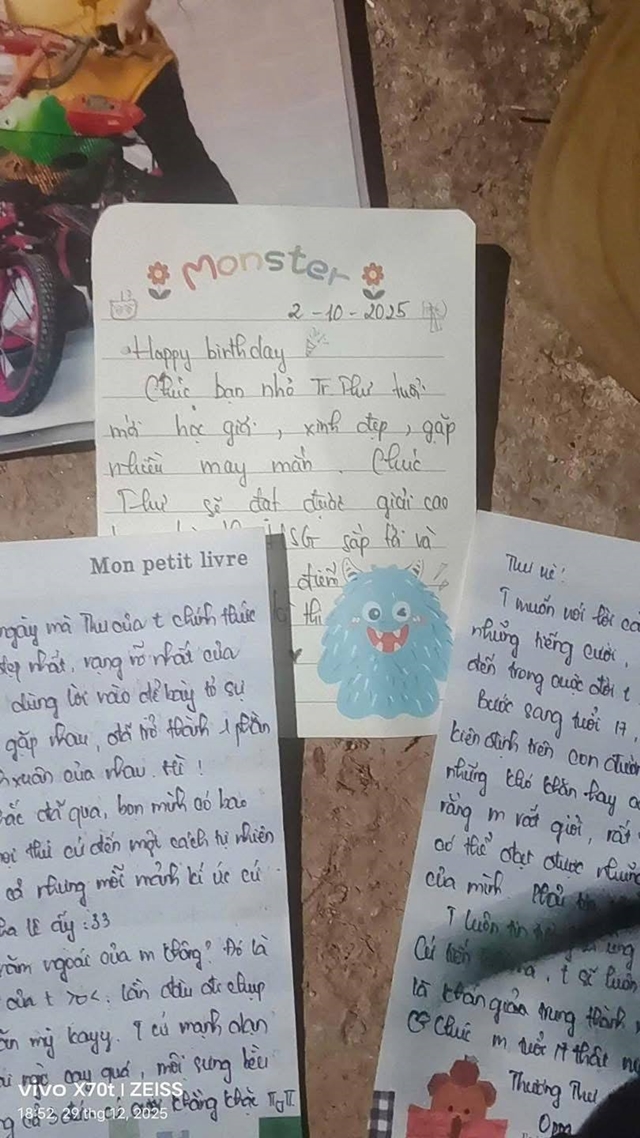 Monster
2-10-2025
Happy birthday
Chúc bạn nhỏ Tr Thư tuổi
mới học giỏi, xinh đẹp, gặp
nhiều may mắn. Chúc
Thư sẽ đạt được giải cao
HSG sắp tới và
điểm
thi
Mon petit livre
ngày mà Thư của t chính thức
đẹp nhất, rạng rỡ nhất của
dùng lời nào để bày tỏ sự
gặp nhau, đã trở thành 1 phần
xuân của nhau. Hì!
đã qua, bọn mình có bao
mọi thứ cứ đến một cách tự nhiên
cả nhưng mỗi mảnh kí ức cứ
lẽ ấy :33
năm ngoái của m không? Đó là
của t >o<. Lần đầu đi chụp
T cứ mạnh dạn
cay quá, môi sưng
khóc
Thư nè!
T muốn nói lời
những tiếng cười,
đến trong cuộc đời t
Bước sang tuổi 17,
kiên định trên con đường
những khó khăn hay
rằng m rất giỏi, rất
có thể đạt được những
của mình
T luôn tin
Cứ tiến, t sẽ luôn
là khán giả trung thành
Chúc m tuổi 17 thật
Thương Thư
vivo X70t | ZEISS
18:52, 29 thg 12, 2025